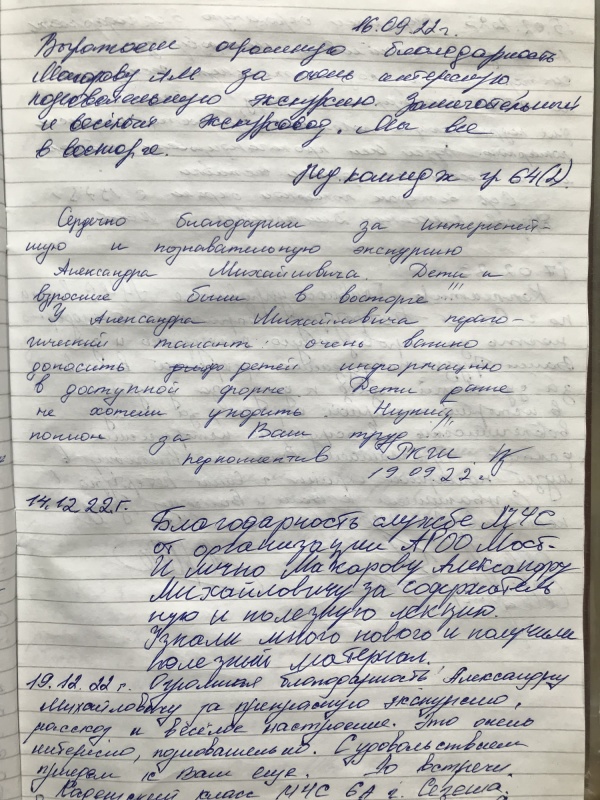 16.09.22г.
Выражаем огромную благодарность
Макарову АМ за очень интересную
познавательную экскурсию. Замечательный
и весёлый экскурсовод. Мы все
в восторге.
Пед. колледж гр 64(2).
Сердечно благодарим за интересней-
шую и познавательную экскурсию
Александра Михайловича. Дети и
взрослые были в восторге!!!
У Александра Михайловича педаго-
гический талант: очень важно
доносить детей информацию
в доступной форме. Дети даже
не хотели уходить. Низкий
поклон за Ваш труд!!!
педколлектив
19.09.22г.
14.12.22г.
Благодарность службе МЧС
от организации АРОО Мост.
И лично Макарову Александру
Михайловичу за содержатель
ную и полезную лекцию.
Узнали много нового и получили
полезный материал.
19.12.22г. Огромная благодарность Александру
Михайловичу за прекрасную экскурсию,
рассказ и весёлое настроение. Это очень
интересно, познавательно. С удовольствием
придем к Вам еще. До встречи.
Кадетский класс МЧС 6А г.